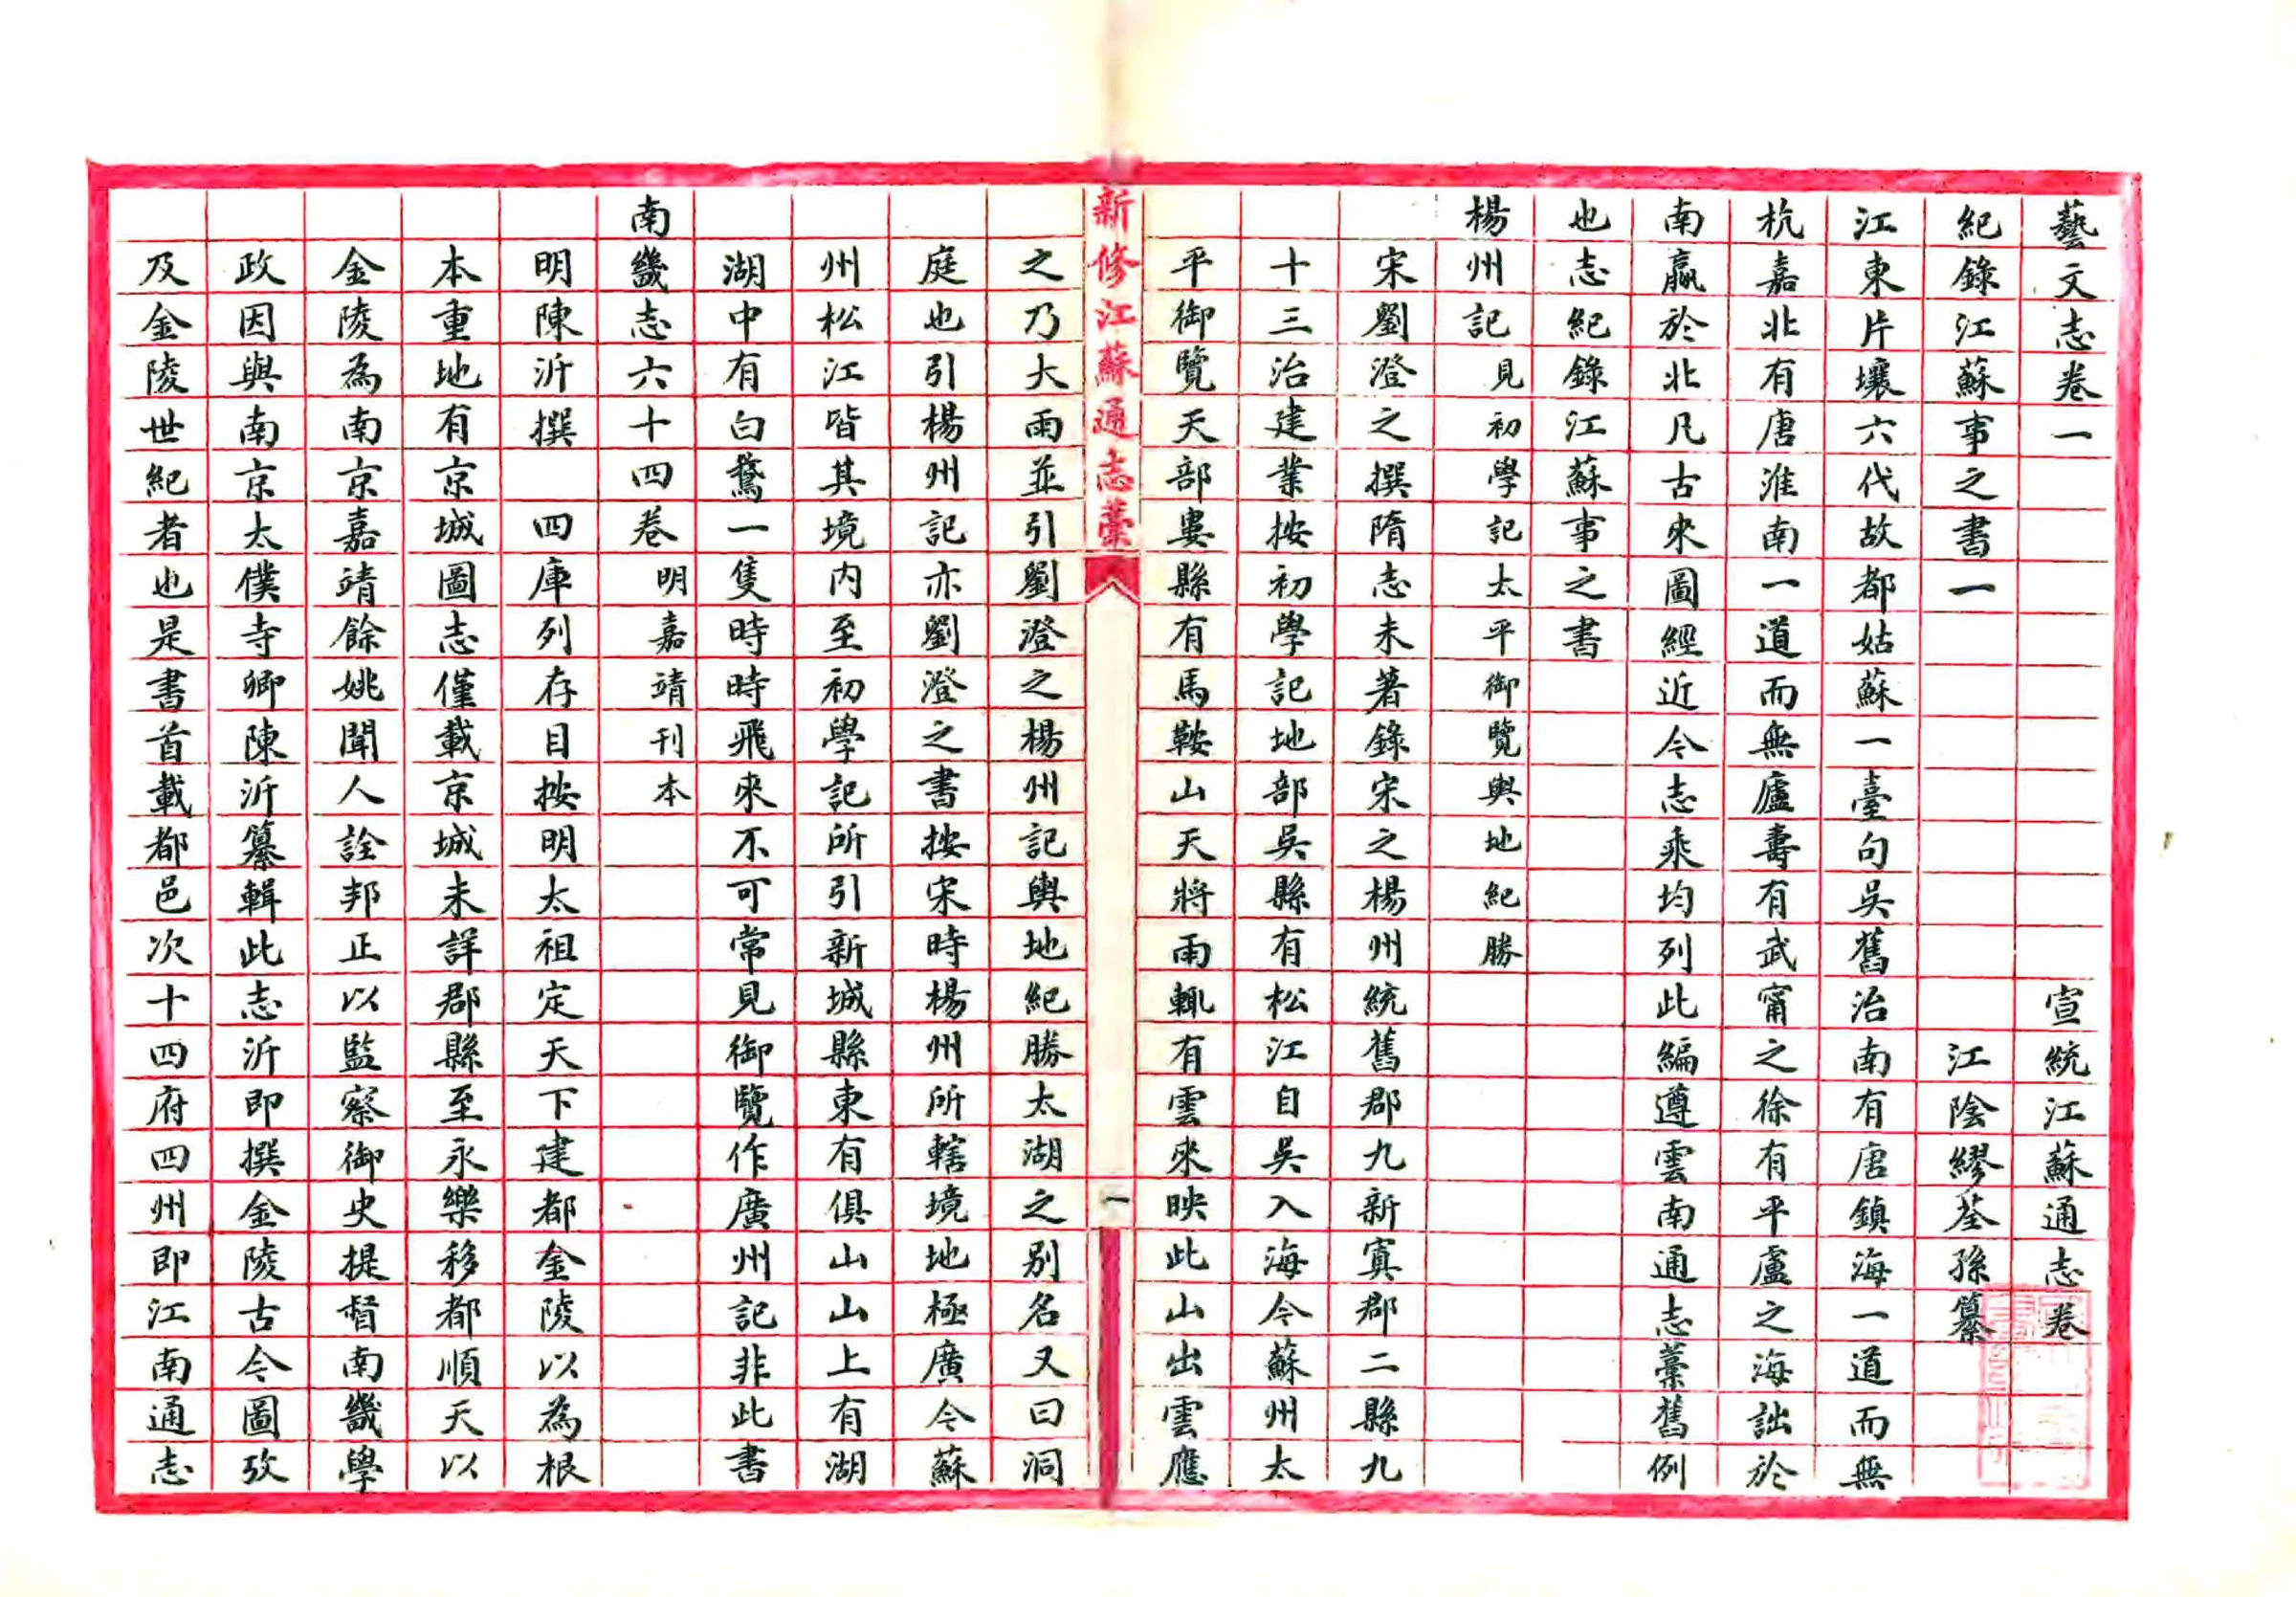 藝文志卷一　宣統江蘇通志卷
紀錄江蘇事之書一　江陰繆荃孫纂
江東片壤六代故都姑蘇一臺句吳舊治南有唐鎮海一道而無
杭嘉北有唐淮南一道而無廬壽有武甯之徐有平盧之海詘於
南贏於北凡古來圖經近今志乘均列此編遵雲南通志藁舊例
也志紀錄江蘇事之書
楊州記見初學記太平御覽輿地紀勝
宋劉澄之撰隋志未著錄宋之楊州統舊郡九新寘郡二縣九
十三治建業按初學記地部吳縣有松江自吳入海今蘇州太
平御覽天部婁縣有馬鞍山天將雨輒有雲來映此山出雲應
新修江蘇通志藁
一
之乃大雨並引劉澄之楊州記輿地紀勝太湖之别名又曰洞
庭也引楊州記亦劉澄之書按宋時楊州所轄境地極廣今蘇
州松江皆其境内至初學記所引新城縣東有俱山山上有湖
湖中有白鵞一隻時時飛來不可常見御覽作廣州記非此書
南畿志六十四卷明嘉靖刊本
明陳沂撰　四庫列存目按明太祖定天下建都金陵以為根
本重地有京城圖志僅載京城未詳郡縣至永樂移都順天以
金陵為南京嘉靖餘姚聞人詮邦正以監察御史提督南畿學
政因與南京太僕寺卿陳沂纂輯此志沂即撰金陵古今圖攷
及金陵世紀者也是書首載都邑次十四府四州即江南通志